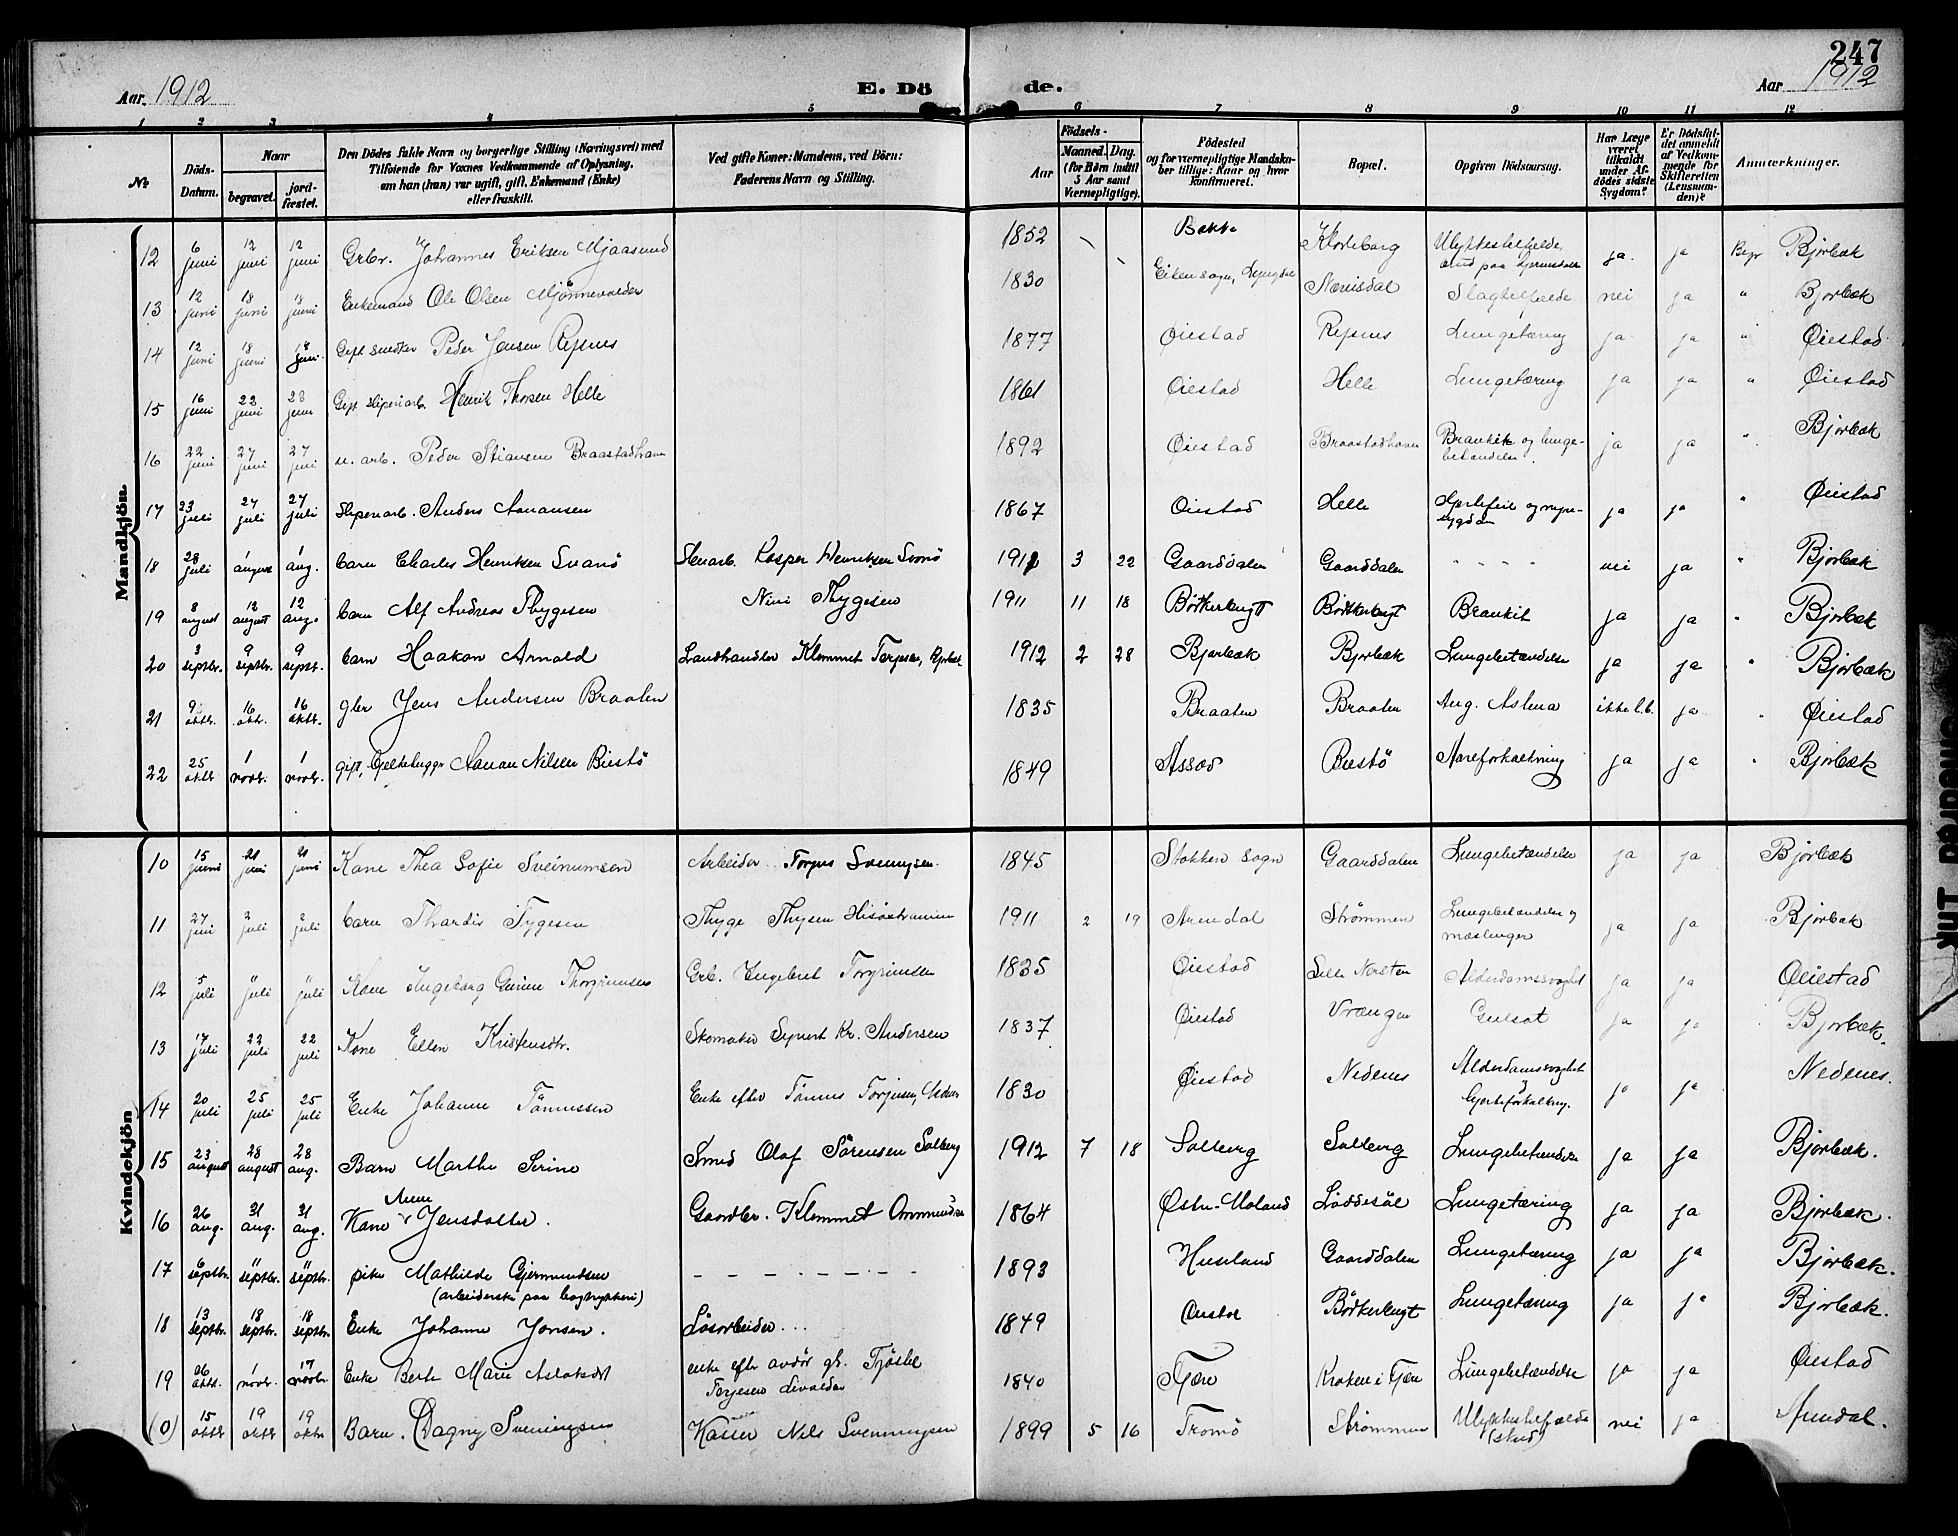 247
Aar. 1912 E. Dö de. Aar 1912
1 2 3 4 5 6 7 8 9 10 11 12
No
Döds-Datum.
Naar
begravet.
jord-fæstet.
Den Dödes fulde Navn og borgerlige Stilling (Næringsvei) med
Tilföiende for Voxnes Vedkommende af Oplysning,
om han (hun) var ugift, gift, Enkemand (Enke)
eller fraskilt.
Ved gifte Koner: Mandens, ved Börn:
Faderens Navn og Stilling.
Födsels-
Aar
Maaned. Dag.
(for Börn indtil
5 Aar samt
Værnepligtige).
Födested
og for værnepligtige Mandska-
ber tillige: Naar og hvor
konfirmeret.
Bopæl.
Opgiven Dödsaarsag.
Har Læge
været
tilkaldt
under Af-
dödes sidste
Sygdom?
Er Dödsfal-
det anmeldt
af Vedkom-
mende for
Skifteretten
(Lensman-
den)?
Anmærkninger.
Mandkjön.
12 6 juni 12 juni 12 juni Grbr. Johannes Eriksen Mjaasund 1852 Bakke Klodeborg Ulykkestilfælde ja. ja Begr Bjorbæk
13 12 juni 18 juni 18 juni Enkemand Ole Olsen 1830 Eiken sogn, Nævisdal Slagtilfælde nei ja " Bjorbæk
14 12 juni 18 juni 18 juni Gift smed Peder Jensen Repsnes 1877 Øiestad Repsnes Lungetæring ja ja " Øiestad
15 16 juni 22 juni juni Gift Sliperiarb. Henrik Thorsen Helle 1861 Øiestad Helle Lungetæring ja ja " Øiestad
16 22 juni 27 juni 27 juni u. arb. Peder Stiansen Braastadhavn 1892 Øiestad Braastadhavn Bronkit og lunge-
betændelse. ja ja " Bjorbæk
17 23 juli 27 juli 27 juli Sliperiarb. Anders Aanansen 1867 Øiestad Helle Hjertefeil og nyre-
sygdom ja ja " Øiestad
18 28 juli 1 august 1 aug. barn Charles Henriksen Svanö Kasper Henriksen Svanö 1912 3 22 Gaarddalen Gaarddalen " " " " nei ja " Bjorbæk
19 8 august 12 august 12 aug. barn Alf Andreas Thygesen Nini Thygesen 1911 11 18 Bötkerbugt Bötkerbugt Bronkit ja ja " Bjorbæk
20 3 septbr. 9 septbr. 9 septb. barn Haakon Arnold Landhandler Klemmet Terjesen, 1912 2 28 Bjorbæk Bjorbæk Lungebetændelse ja ja " Bjorbæk
21 9 oktb. 16 okt. 16 oktb. gbr Jens Andersen Braaten 1835 Braaten Braaten Ang. Astma ikke l.b. ja " Øiestad
22 25 oktbr 1 novbr. 1 novbr. gift, Aanon Nilsen Biestö 1849 Assæv Biestö Aareforkalkning ja ja " Bjorbæk
Kvindekjön
10 15 juni 21 juni 21 juni Kone Thea Sofie Sveinumsen Arbeider Torjus 1845 Stokken sogn Gaarddalen Lungebetændelse ja ja Bjorbæk
11 27 juni 2 juli 2 juli barn Thordis Tygesen Thyge Thysen 1911 2 19 Arendal Strømmen Lungebetændelse og
mæslinger ja ja Bjorbæk
12 5 juli 11 juli 11 juli Kone Ingeborg Gurine Thorgrimsen Grb. Engebret Torgrimsen 1835 Øiestad Lille Norsten Alderdomssvaghet ja ja Øiestad
13 17 juli 22 juli 22 juli Kone Ellen Kristensdtr. Skomaker Syvert Kr. Andersen 1837 Øiestad Vrængen Gulsot ja ja Bjorbæk.
14 20 juli 25 juli 25 juli Enke Johanne Tönnessen Enke efter Tönnes Torjusen, 1830 Øiestad Nedenes Alderdomssvaghet
Hjerteforkalkng. ja ja Nedenes.
15 23 august 28 august 28 aug. Barn Marthe Serine Smed Olaf Sörensen Solberg 1912 7 18 Solberg Solberg Lungebetændelse ja ja Bjorbæk.
16 26 aug. 31 aug. 31 aug. Kone Anne Jensdatter. Gaardbr. Klemmet Ommundsen 1864 Østre-Moland Löddesöl Lungetæring ja ja Bjorbæk.
17 6 septbr. 11 septbr. 11 septbr. pike Mathilde Gjermundsen
(arbeiderske paa bogtrykkeri) – – – – – – – 1893 Huseland Gaarddalen Lungetæring ja ja Bjorbæk.
18 13 septbr. 18 septbr. 18 septbr. Enke Johanne Jensen. Løsarbeider ... 1849 Bötkerbugt Lungetæring ja ja Bjorbæk.
19 26 oktb. 1 novbr. 17 novbr. Enke Berte Marie Aslaksdt enke efter avdöd gb.
Terjesen 1840 Fjære Kroken i Fjære Lungebetændelse ja ja Øiestad
(0) 15 oktbr 19 oktbr 19 oktbr Barn. Dagny Sveningsen Nils Svenningsen 1899 5 16 Tromö Strømmen Ulykkestilfælde
(skud) nei ja Arendal.